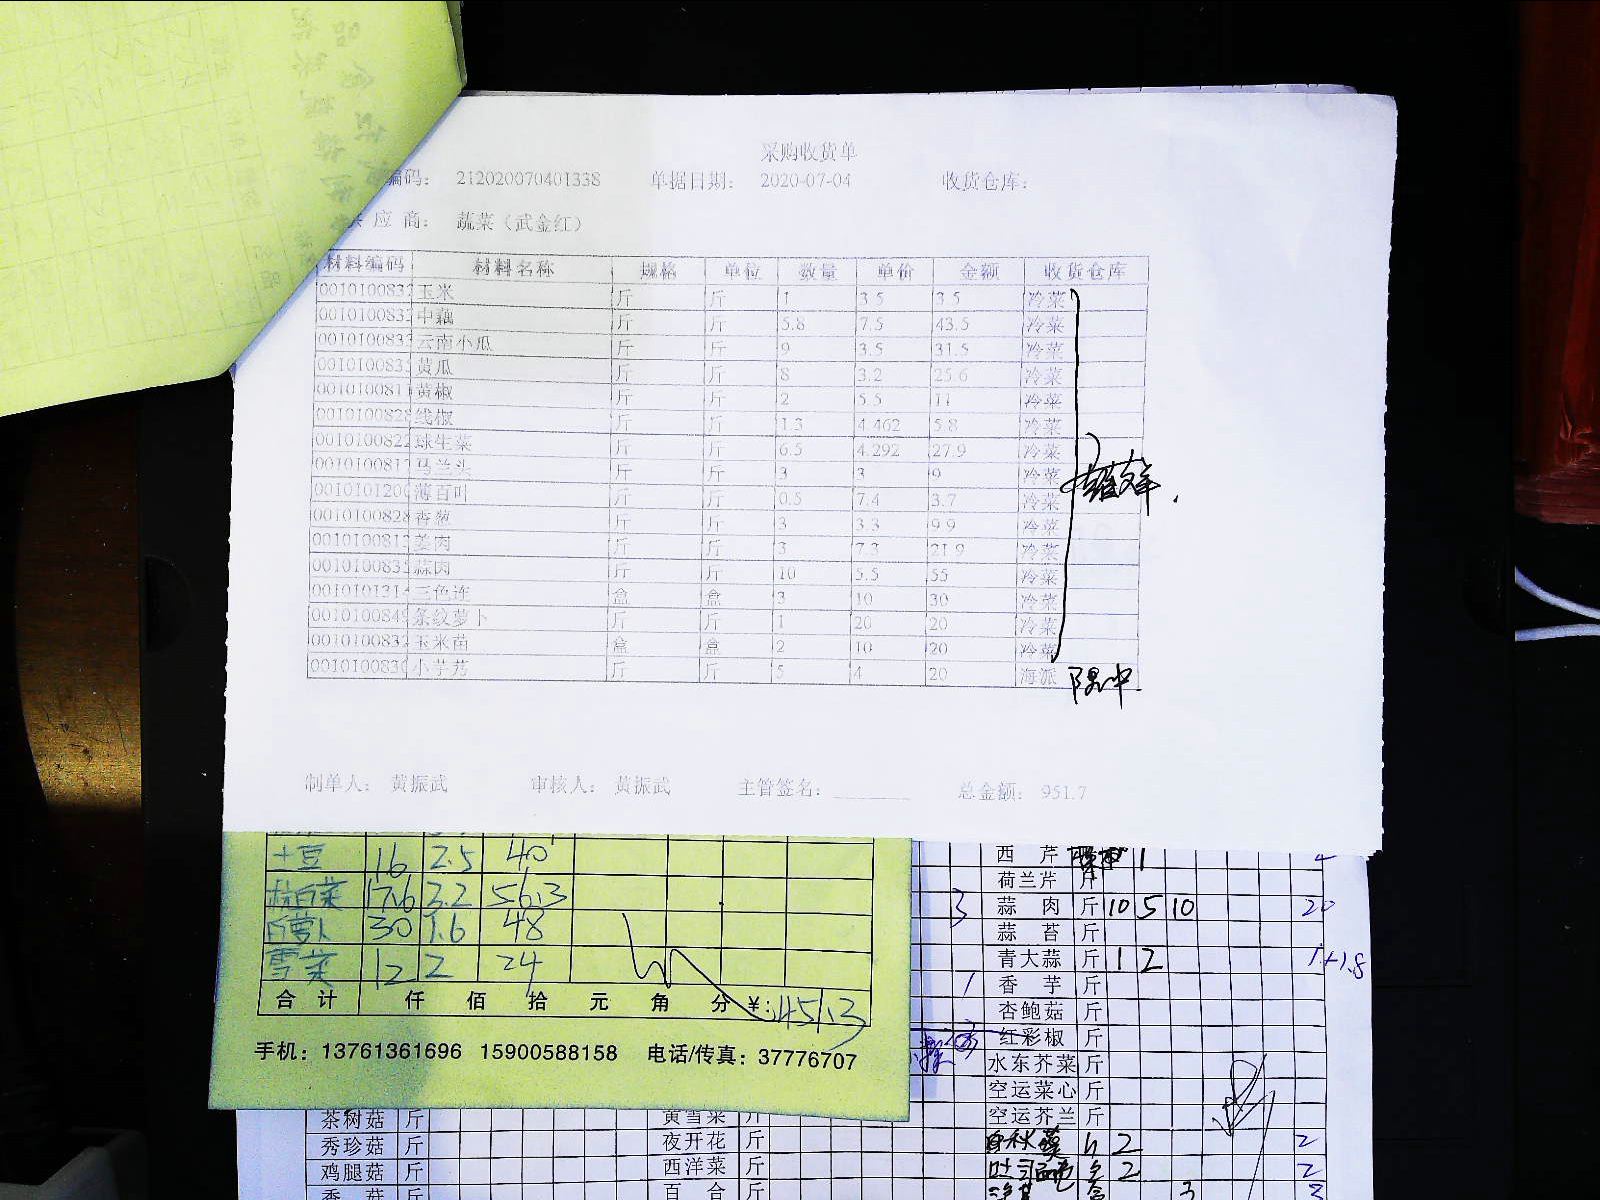 采购收货单
编码： 212020070401338 单据日期： 2020-07-04 收货仓库：
应 商： 蔬菜（武金红）
材料编码 材料名称 规格 单位 数量 单价 金额 收货仓库
0010100832 玉米 斤 斤 1 3.5 3.5 冷菜
0010100832 中藕 斤 斤 5.8 7.5 43.5 冷菜
0010100833 云南小瓜 斤 斤 9 3.5 31.5 冷菜
001010083 黄瓜 斤 斤 8 3.2 25.6 冷菜
001010081 黄椒 斤 斤 2 5.5 11 冷菜
001010082 线椒 斤 斤 1.3 4.462 5.8 冷菜
0010100822 球生菜 斤 斤 6.5 4.292 27.9 冷菜
001010081 马兰头 斤 斤 3 3 9 冷菜
001010120 薄百叶 斤 斤 0.5 7.4 3.7 冷菜
001010082 香葱 斤 斤 3 3.3 9.9 冷菜
001010081 姜肉 斤 斤 3 7.3 21.9 冷菜
001010083 蒜肉 斤 斤 10 5.5 55 冷菜
001010131 三色连 盒 盒 3 10 30 冷菜
001010084 条纹萝卜 斤 斤 1 20 20 冷菜
001010083 玉米苗 盒 盒 2 10 20 冷菜
001010083 小芋艿 斤 斤 5 4 20 海派
制单人： 黄振武 审核人： 黄振武 主管签名： 总金额： 951.7
土豆 16 2.5 40
17.6 3.2 56.3
白萝卜 30 1.6 48
雪菜 12 2 24
合 计 仟 佰 拾 元 角 分 ￥: 451.3
手机：13761361696 15900588158 电话/传真：37776707
西 芹 1
荷兰芹 斤
3 蒜 肉 斤 10 5 10 20
蒜 苔 斤
青大蒜 斤 1 2 1+1.8
1 香 芋 斤
杏鲍菇 斤
红彩椒 斤
水东芥菜 斤
空运菜心 斤
空运芥兰 斤
茶树菇 斤 黄雪菜 斤
秀珍菇 斤 夜开花 斤 2 2
鸡腿菇 斤 西洋菜 斤 2 2
香 菇 斤 百 合 斤 3 3